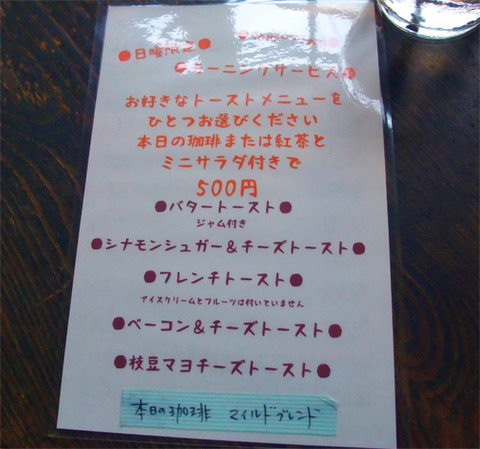 ●日曜限定●
●モーニングサービス●
お好きなトーストメニューを
ひとつお選びください
本日の珈琲または紅茶と
ミニサラダ付きで
500円
●バタートースト●
ジャム付き
●シナモンシュガー&チーズトースト●
●フレンチトースト●
アイスクリームとフルーツは付いていません
●ベーコン&チーズトースト●
●枝豆マヨチーズトースト●
本日の珈琲 マイルドブレンド